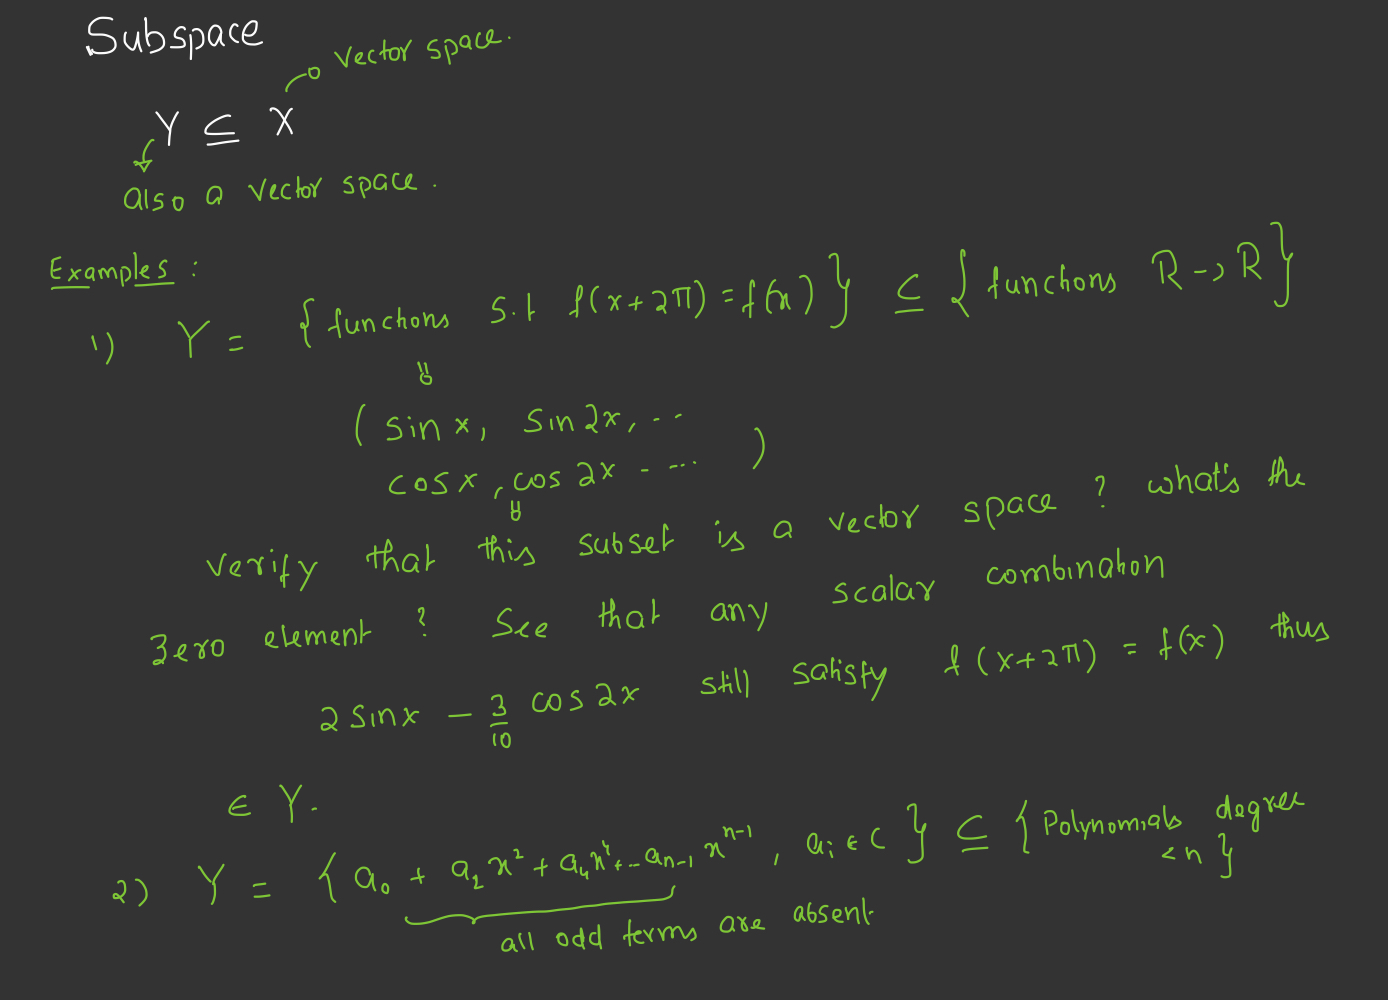 Subspace
vector space.
Y ⊆ X
also a vector space.
Examples :
1) Y = { functions s.t f(x+2π) = f(x) } ⊆ { functions R → R }
( sin x, sin 2x, ...
cos x, cos 2x - ... )
verify that this subset is a vector space ? what's the
zero element ? See that any scalar combination
2 sin x - 3/10 cos 2x still satisfy f(x+2π) = f(x) thus
∈ Y.
2) Y = { a₀ + a₂x² + a₄x⁴ + -- aₙ₋₁ xⁿ⁻¹, aᵢ ∈ C } ⊆ { Polynomials degree
< n }
all odd terms are absent